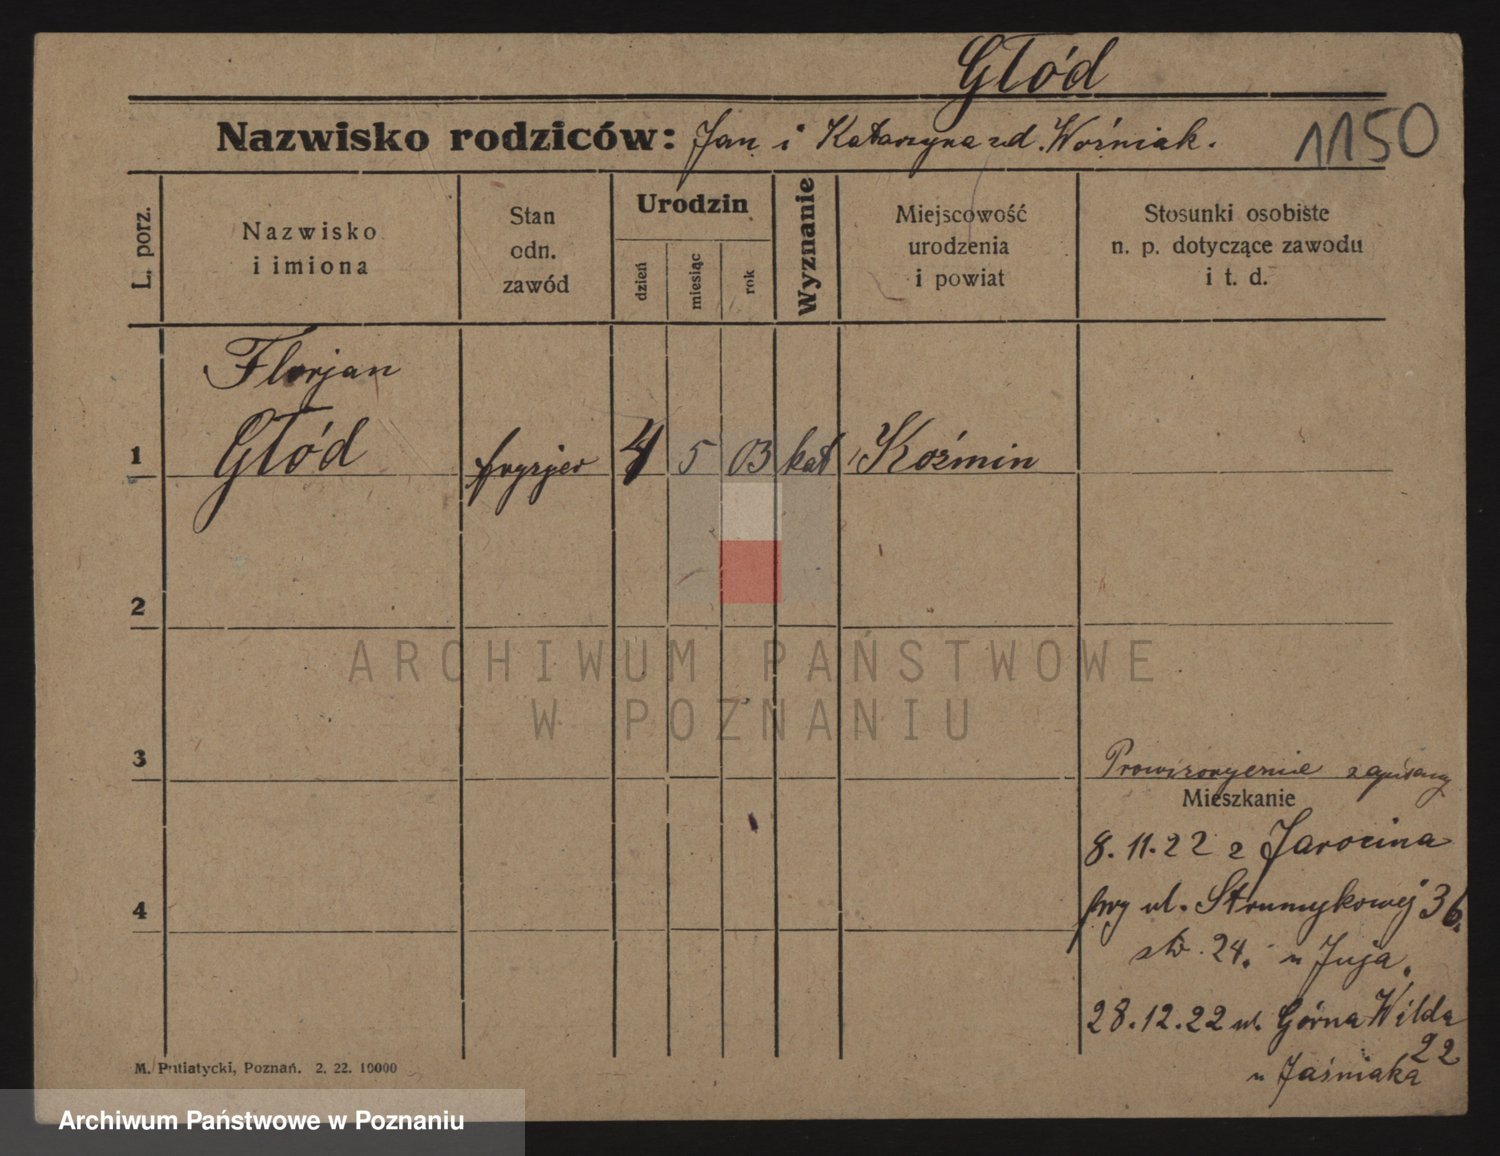 Głód
Nazwisko rodziców: Jan i Katarzyna zd. Woźniak.
1150
L. porz.
Nazwisko
i imiona
Stan
odn.
zawód
Urodzin
dzień
miesiąc
rok
Wyznanie
Miejscowość
urodzenia
i powiat
Stosunki osobiste
n. p. dotyczące zawodu
i t. d.
Florjan
1 Głód fryzjer 4 5 03 kat Koźmin
2
ARCHIWUM PAŃSTWOWE
W POZNANIU
3
Prowizorycznie zapisany
Mieszkanie
8.11.22 z Jarocina
4
przy ul. Strumykowej 36.
str. 24. u Juja.
28.12.22 ul. Górna Wilda
22
u Jaśniaka
M. Putiatycki, Poznań. 2. 22. 10000
Archiwum Państwowe w Poznaniu